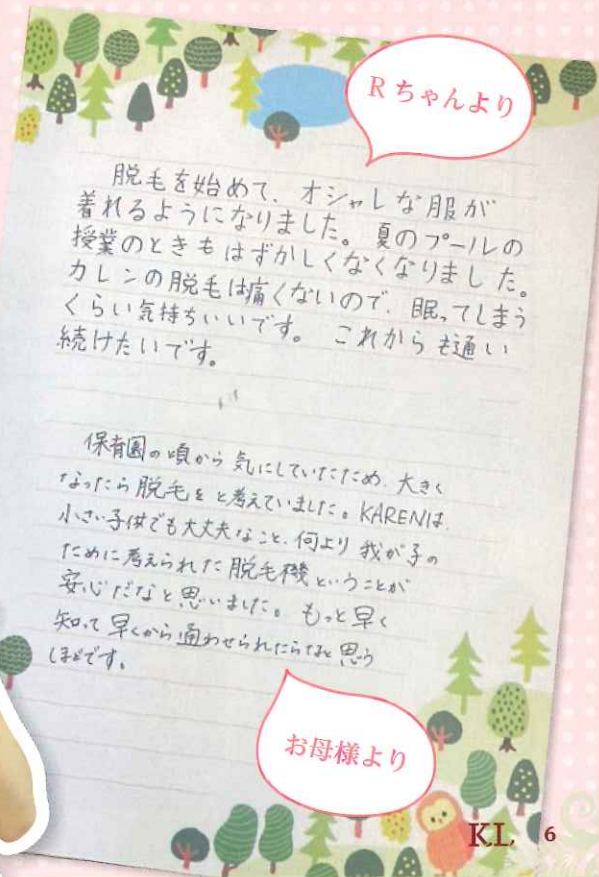 Rちゃんより
脱毛を始めて、オシャレな服が
着れるようになりました。夏のプールの
授業のときもはずかしくなくなりました。
カレンの脱毛は痛くないので、眠ってしまう
くらい気持ちいいです。これからも通い
続けたいです。
保育園の頃から気にしていたため、大きく
なったら脱毛をと考えていました。KARENは
小さい子供でも大丈夫なこと、何より我が子の
ために考えられた脱毛機ということが
安心だなと思いました。もっと早く
知って早くから通わせられたらなと思う
ほどです。
お母様より
KL 6